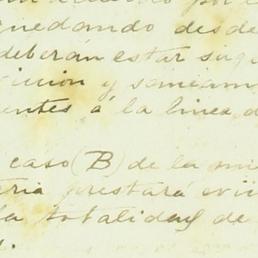 quedando desde
deberán estar suje
vicción y saneam
entes á la linea d
caso (B) de la mi
teria prestará evic
la totalidad de